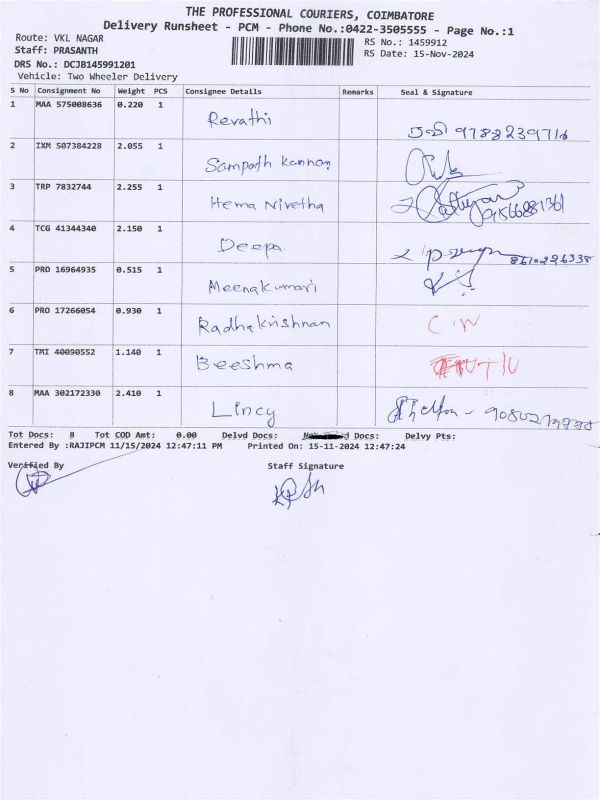 THE PROFESSIONAL COURIERS, COIMBATORE
Delivery Runsheet - PCM - Phone No.:0422-3505555 - Page No.:1
Route: VKL NAGAR
RS No.: 1459912
Staff: PRASANTH
RS Date: 15-Nov-2024
DRS No.: DCJB145991201
Vehicle: Two Wheeler Delivery
S No Consignment No Weight PCS Consignee Details Remarks Seal & Signature
1 MAA 575008636 0.220 1 Revathi
2 IXM 507384228 2.055 1 Sampath kannan
3 TRP 7832744 2.255 1 Hema Nivetha
4 TCG 41344340 2.150 1 Deepa 8610226338
5 PRO 16964935 0.515 1 Meenakumari
6 PRO 17266054 0.930 1 Radhakrishnan
7 TMI 40090552 1.140 1 Beeshma
8 MAA 302172330 2.410 1 Lincy
Tot Docs: 8 Tot COD Amt: 0.00 Delvd Docs: Docs: Delvy Pts:
Entered By :RAJIPCM 11/15/2024 12:47:11 PM Printed On: 15-11-2024 12:47:24
Verified By Staff Signature